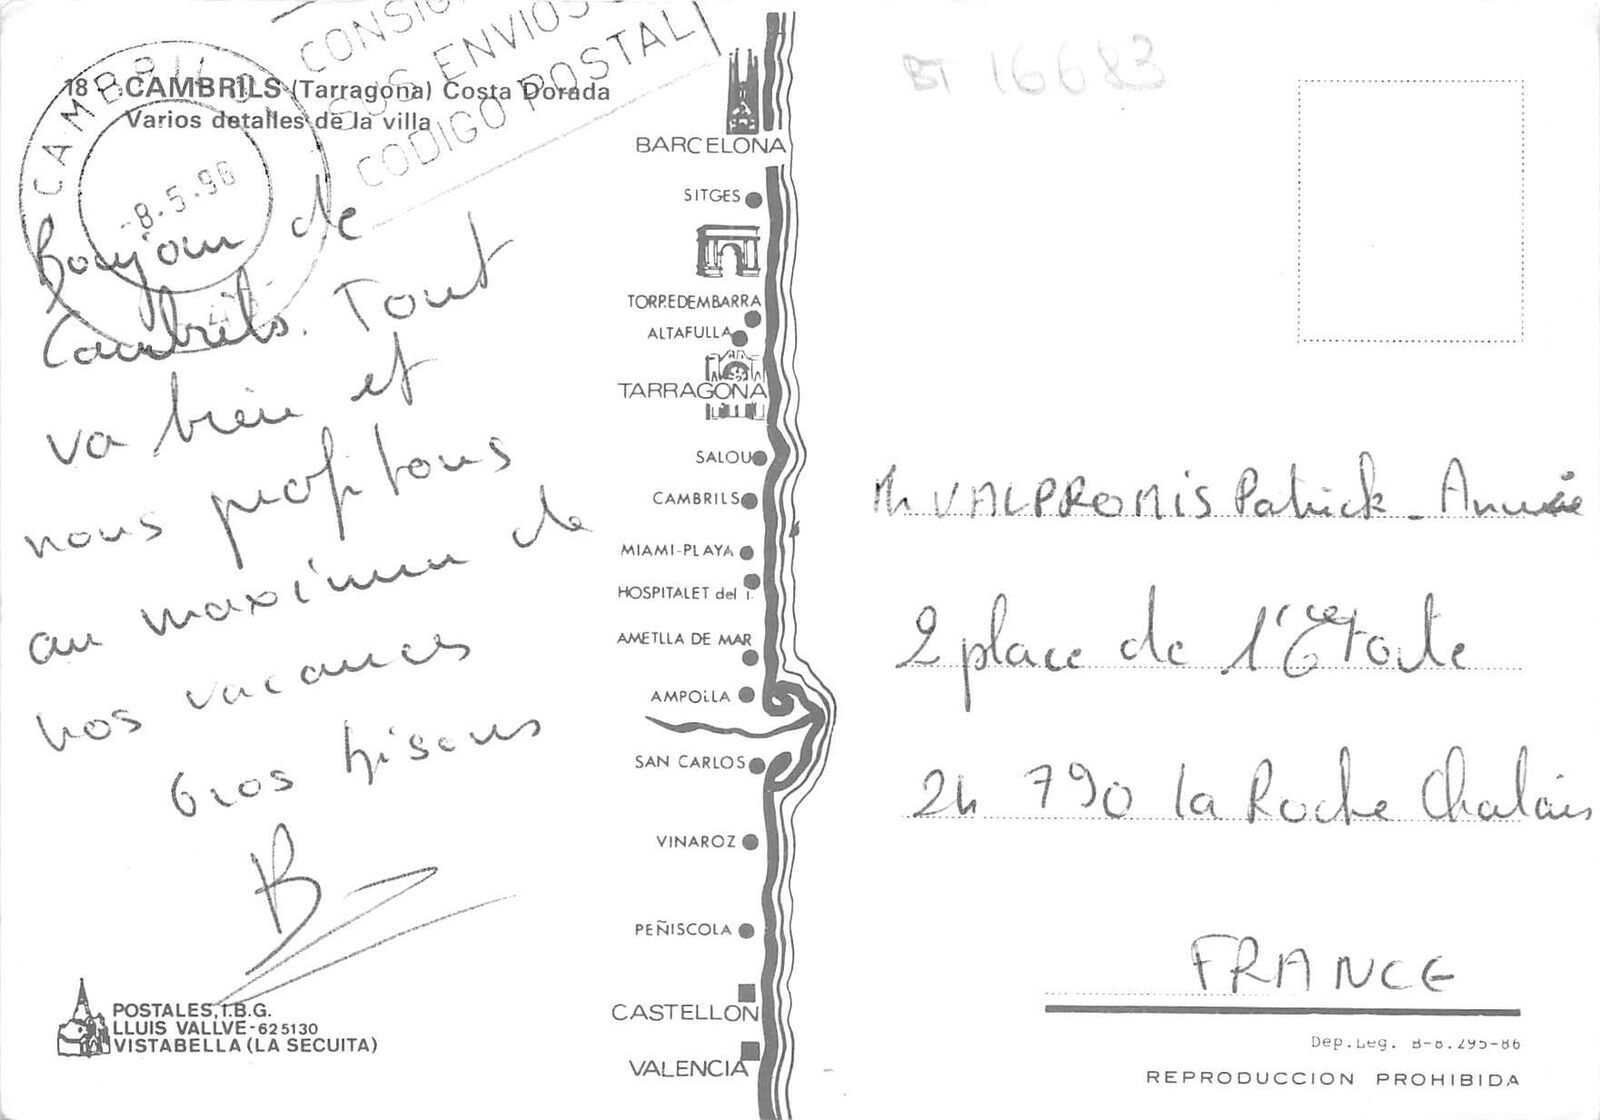 CONSIG
SUS ENVIOS
CODIGO POSTAL
CAMBRILS
-8.5.96
18 CAMBRILS (Tarragona) Costa Dorada
Varios detalles de la villa
Bonjour de
Cambrils. Tout
va bien et
nous profitons
au maximum de
nos vacances
Gros bisous
B
POSTALES, I.B.G.
LLUIS VALLVE-625130
VISTABELLA (LA SECUITA)
BARCELONA
SITGES
TORREDEMBARRA
ALTAFULLA
TARRAGONA
SALOU
CAMBRILS
MIAMI-PLAYA
HOSPITALET del I.
AMETLLA DE MAR
AMPOLLA
SAN CARLOS
VINAROZ
PEÑISCOLA
CASTELLON
VALENCIA
BT 16683
M VALPROMIS Patrick - Annie
2 place de l'Etoile
24 790 la Roche Chalais
FRANCE
Dep. Leg. B-8.295-86
REPRODUCCION PROHIBIDA